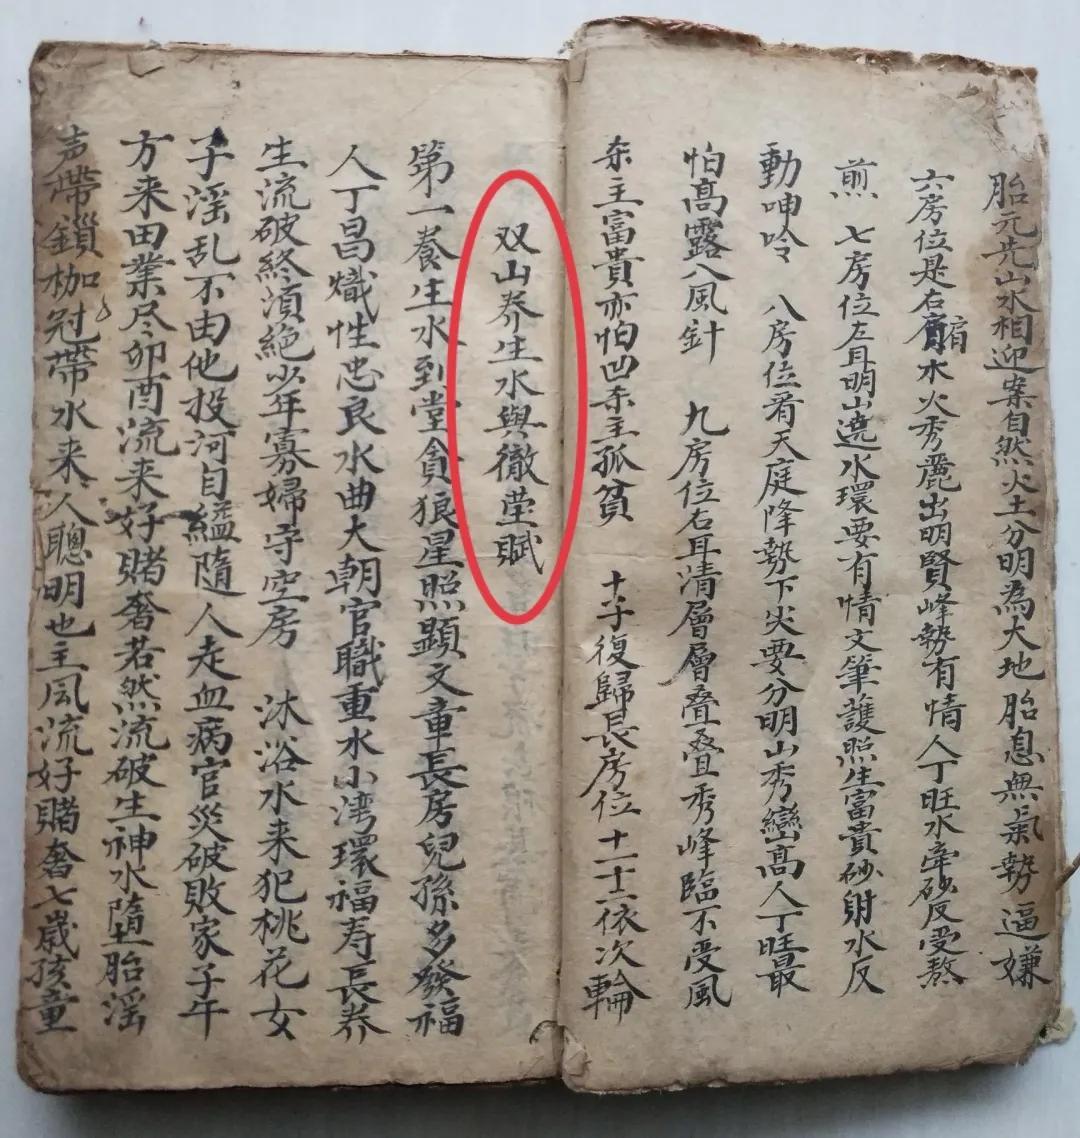 胎元先山水相迎案自然火土分明為大地胎息無氣勢逼嫌
六房位是右肩水火秀麗出明賢峰勢有情人丁旺水牽砂反受熬
煎 七房位左耳明山遶水環要有情文筆護照生富貴砂射水反
動呻吟 八房位看天庭降勢下尖要分明山秀巒高人丁旺最
怕高露八風針 九房位右耳清層層叠叠秀峰臨不受風
杀主富貴亦怕凹杀主孤貧 十子復歸長房位十一十二依次輪
双山养生水與徹莹賦
第一養生水到堂貪狼星照顯文章長房兒孫多發福
人丁昌熾性忠良水曲大朝官職重水小湾環福寿長养
生流破終須絶少年寡婦守空房 沐浴水来犯桃花女
子淫乱不由他投河自縊隨人走血病官災破敗家子午
方来田業尽卯酉流来好賭奢若然流破生神水墮胎淫
声帶鎖枷冠帶水来人聰明也主風流好賭奢七歲孩童